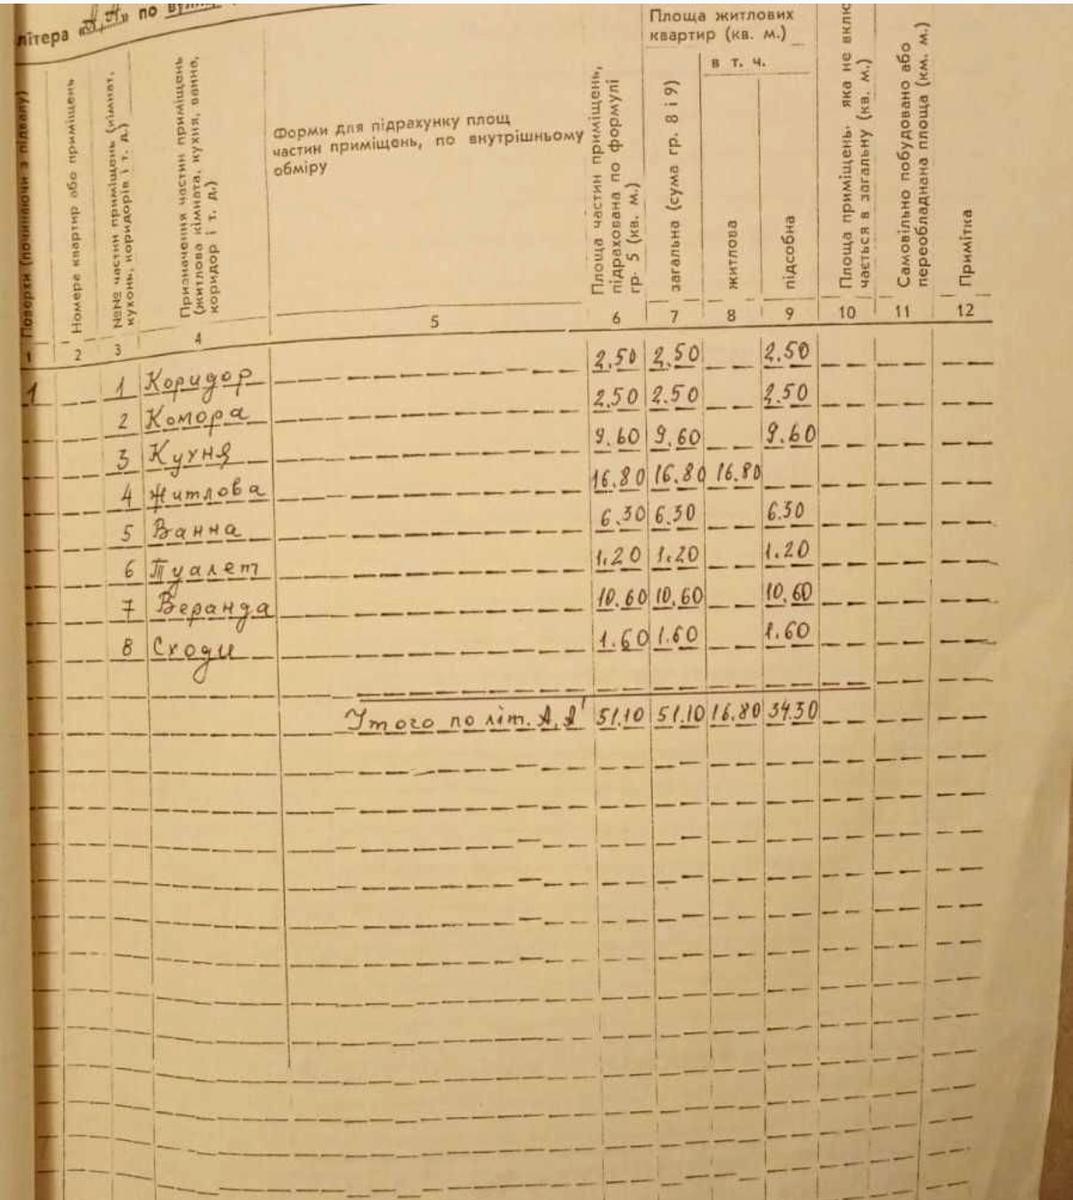 літера «А, А» по
Поверхи (починаючи з підвалу)
Номере квартир або приміщень
№№ частин приміщень (кімнат,
кухонь, коридорів і т. д.)
Призначення частин приміщень
(житлова кімната, кухня, ванно,
коридор і т. д.)
Форми для підрахунку площ
частин приміщень, по внутрішньому
обміру
Площа частин приміщень,
підрахована по формулі
гр. 5 (кв. м.)
Площа житлових
квартир (кв. м.)
в т. ч.
загальна (сума гр. 8 і 9)
житлова
підсобна
Площа приміщень- яка не
чається в загальну (кв. м.)
Самовільно побудовано або
переобладнана площа (км. м.)
Примітка
1 2 3 4 5 6 7 8 9 10 11 12
1 1 Коридор 2.50 2.50 2.50
2 Комора 2.50 2.50 2.50
3 Кухня 9.60 9.60 9.60
4 Житлова 16.80 16.80 16.80
5 Ванна 6.30 6.30 6.30
6 Туалет 1.20 1.20 1.20
7 Веранда 10.60 10.60 10.60
8 Сходи 1.60 1.60 1.60
Утого по літ. А, А' 51.10 51.10 16.80 34.30